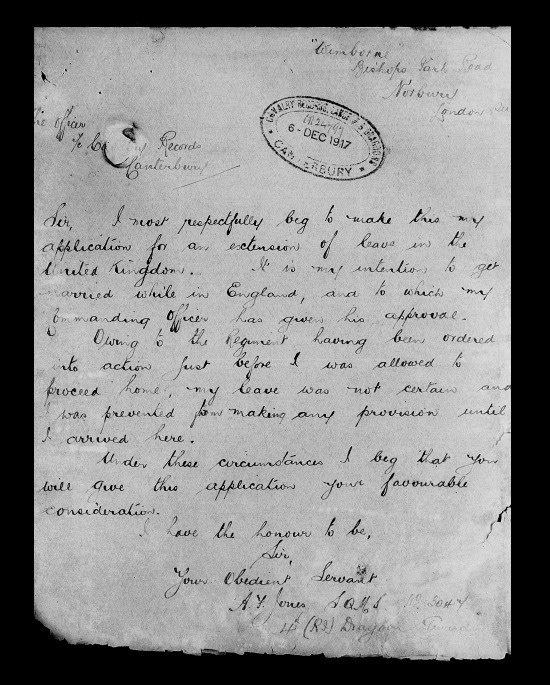 "Wimborne"
Bishops Park Road
Norbury
London
Officer
Records
Canterbury
CAVALRY RECORDS, LANCERS & DRAGOONS
6-DEC 1917
CANTERBURY
Sir, I most respectfully beg to make this my
application for an extension of leave in the
United Kingdom. It is my intention to get
married while in England, and to which my
Commanding Officer has given his approval.
Owing to the Regiment having been ordered
into action just before I was allowed to
proceed home, my leave was not certain and
was prevented from making any provision until
I arrived here.
Under these circumstances I beg that you
will give this application your favourable
consideration.
I have the honour to be,
Sir,
Your Obedient Servant
A.F. Jones S.Q.M.S
4th (RI) Dragoon